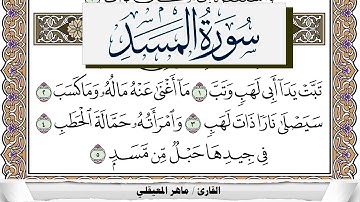 سُورَةُ المَسَدِ
تَبَّتْ يَدَا أَبِي لَهَبٍ وَتَبَّ ١ مَا أَغْنَىٰ عَنْهُ مَالُهُ وَمَا كَسَبَ ٢
سَيَصْلَىٰ نَارًا ذَاتَ لَهَبٍ ٣ وَامْرَأَتُهُ حَمَّالَةَ الْحَطَبِ ٤
فِي جِيدِهَا حَبْلٌ مِّن مَّسَدٍ ٥
القارئ / ماهر المعيقلي